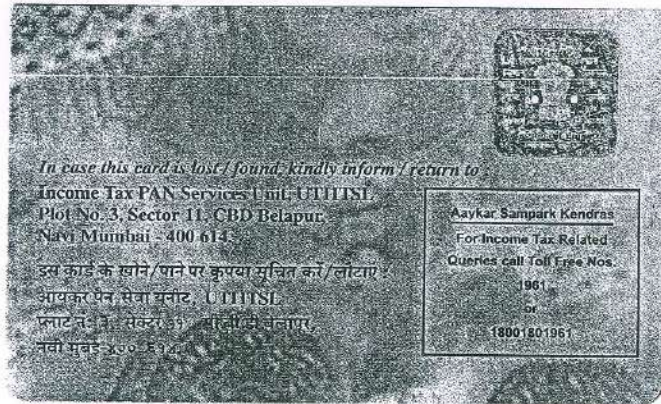 In case this card is lost / found, kindly inform / return to :
Income Tax PAN Services Unit, UTIITSL
Plot No. 3, Sector 11, CBD Belapur,
Navi Mumbai - 400 614.
इस कार्ड के खोने/पाने पर कृपया सूचित करें/लौटाएं :
आयकर पैन सेवा यूनीट, UTIITSL
प्लाट नं: ३, सेक्टर ११, सी.बी.डी.बेलापुर,
नवी मुंबई-४०० ६१४.
Aaykar Sampark Kendras
For Income Tax Related
Queries call Toll Free Nos.
1961
or
18001801961